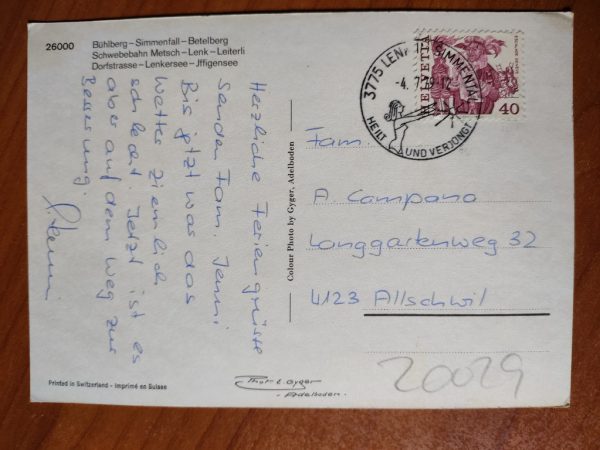 26000
Bühlberg – Simmenfall – Betelberg
Schwebebahn Metsch – Lenk – Leiterli
Dorfstrasse – Lenkersee – Jffigensee
HELVETIA
40
3775 LENK I. SIMMENTAL
-4. 7. 12
HEILT UND VERJÜNGT
Herzliche Feriengrüsse
senden Fam. Jenni
Bis jetzt war das
Wetter ziemlich
schlecht. Jetzt ist es
aber auf dem Weg zur
Besserung.
Colour Photo by Gyger, Adelboden
Fam.
A. Campana
Langgartenweg 32
4123 Allschwil
20029
Printed in Switzerland - Imprimé en Suisse
Phot E. Gyger
- Adelboden -